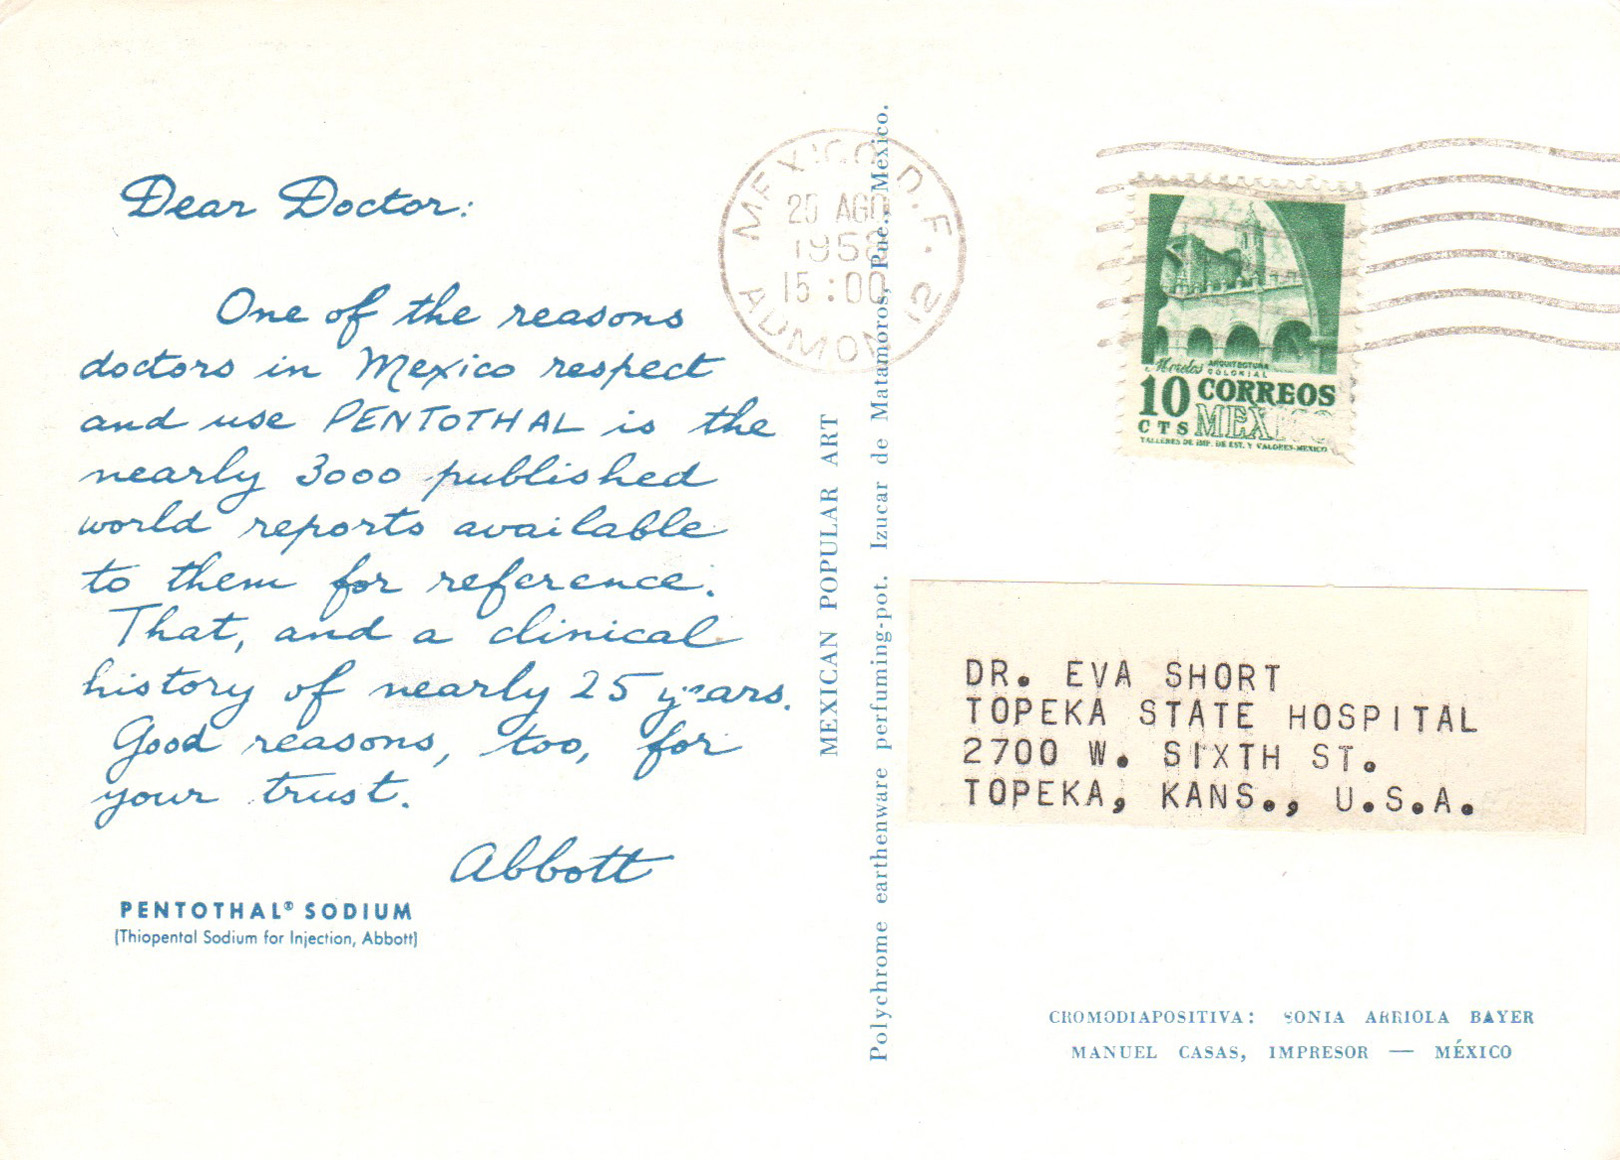 Dear Doctor:
One of the reasons
doctors in Mexico respect
and use PENTOTHAL is the
nearly 3000 published
world reports available
to them for reference.
That, and a clinical
history of nearly 25 years.
Good reasons, too, for
your trust.
Abbott
PENTOTHAL® SODIUM
(Thiopental Sodium for Injection, Abbott)
MEXICAN POPULAR ART
Polychrome earthenware perfuming-pot. Izucar de Matamoros, Pue., Mexico.
MEXICO, D.F.
20 AGO
1958
15:00
ADMON 12
Morelos ARQUITECTURA
COLONIAL
10 CORREOS
CTS MEXICO
TALLERES DE IMP. DE EST. Y VALORES-MEXICO
DR. EVA SHORT
TOPEKA STATE HOSPITAL
2700 W. SIXTH ST.
TOPEKA, KANS., U.S.A.
CROMODIAPOSITIVA: SONIA ARRIOLA BAYER
MANUEL CASAS, IMPRESOR — MÉXICO